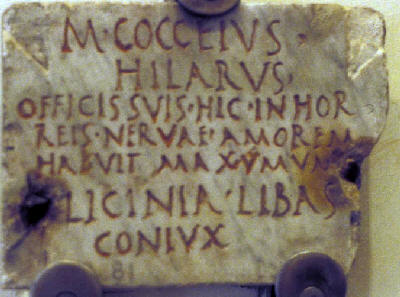 M·COCCEIVS·
HILARVS·
OFFICIS SVIS·HIC·IN HOR
REIS·NERVAE·AMOREM
HABVIT MAXVMVM
LICINIA·LIBAS
CONIVX
81